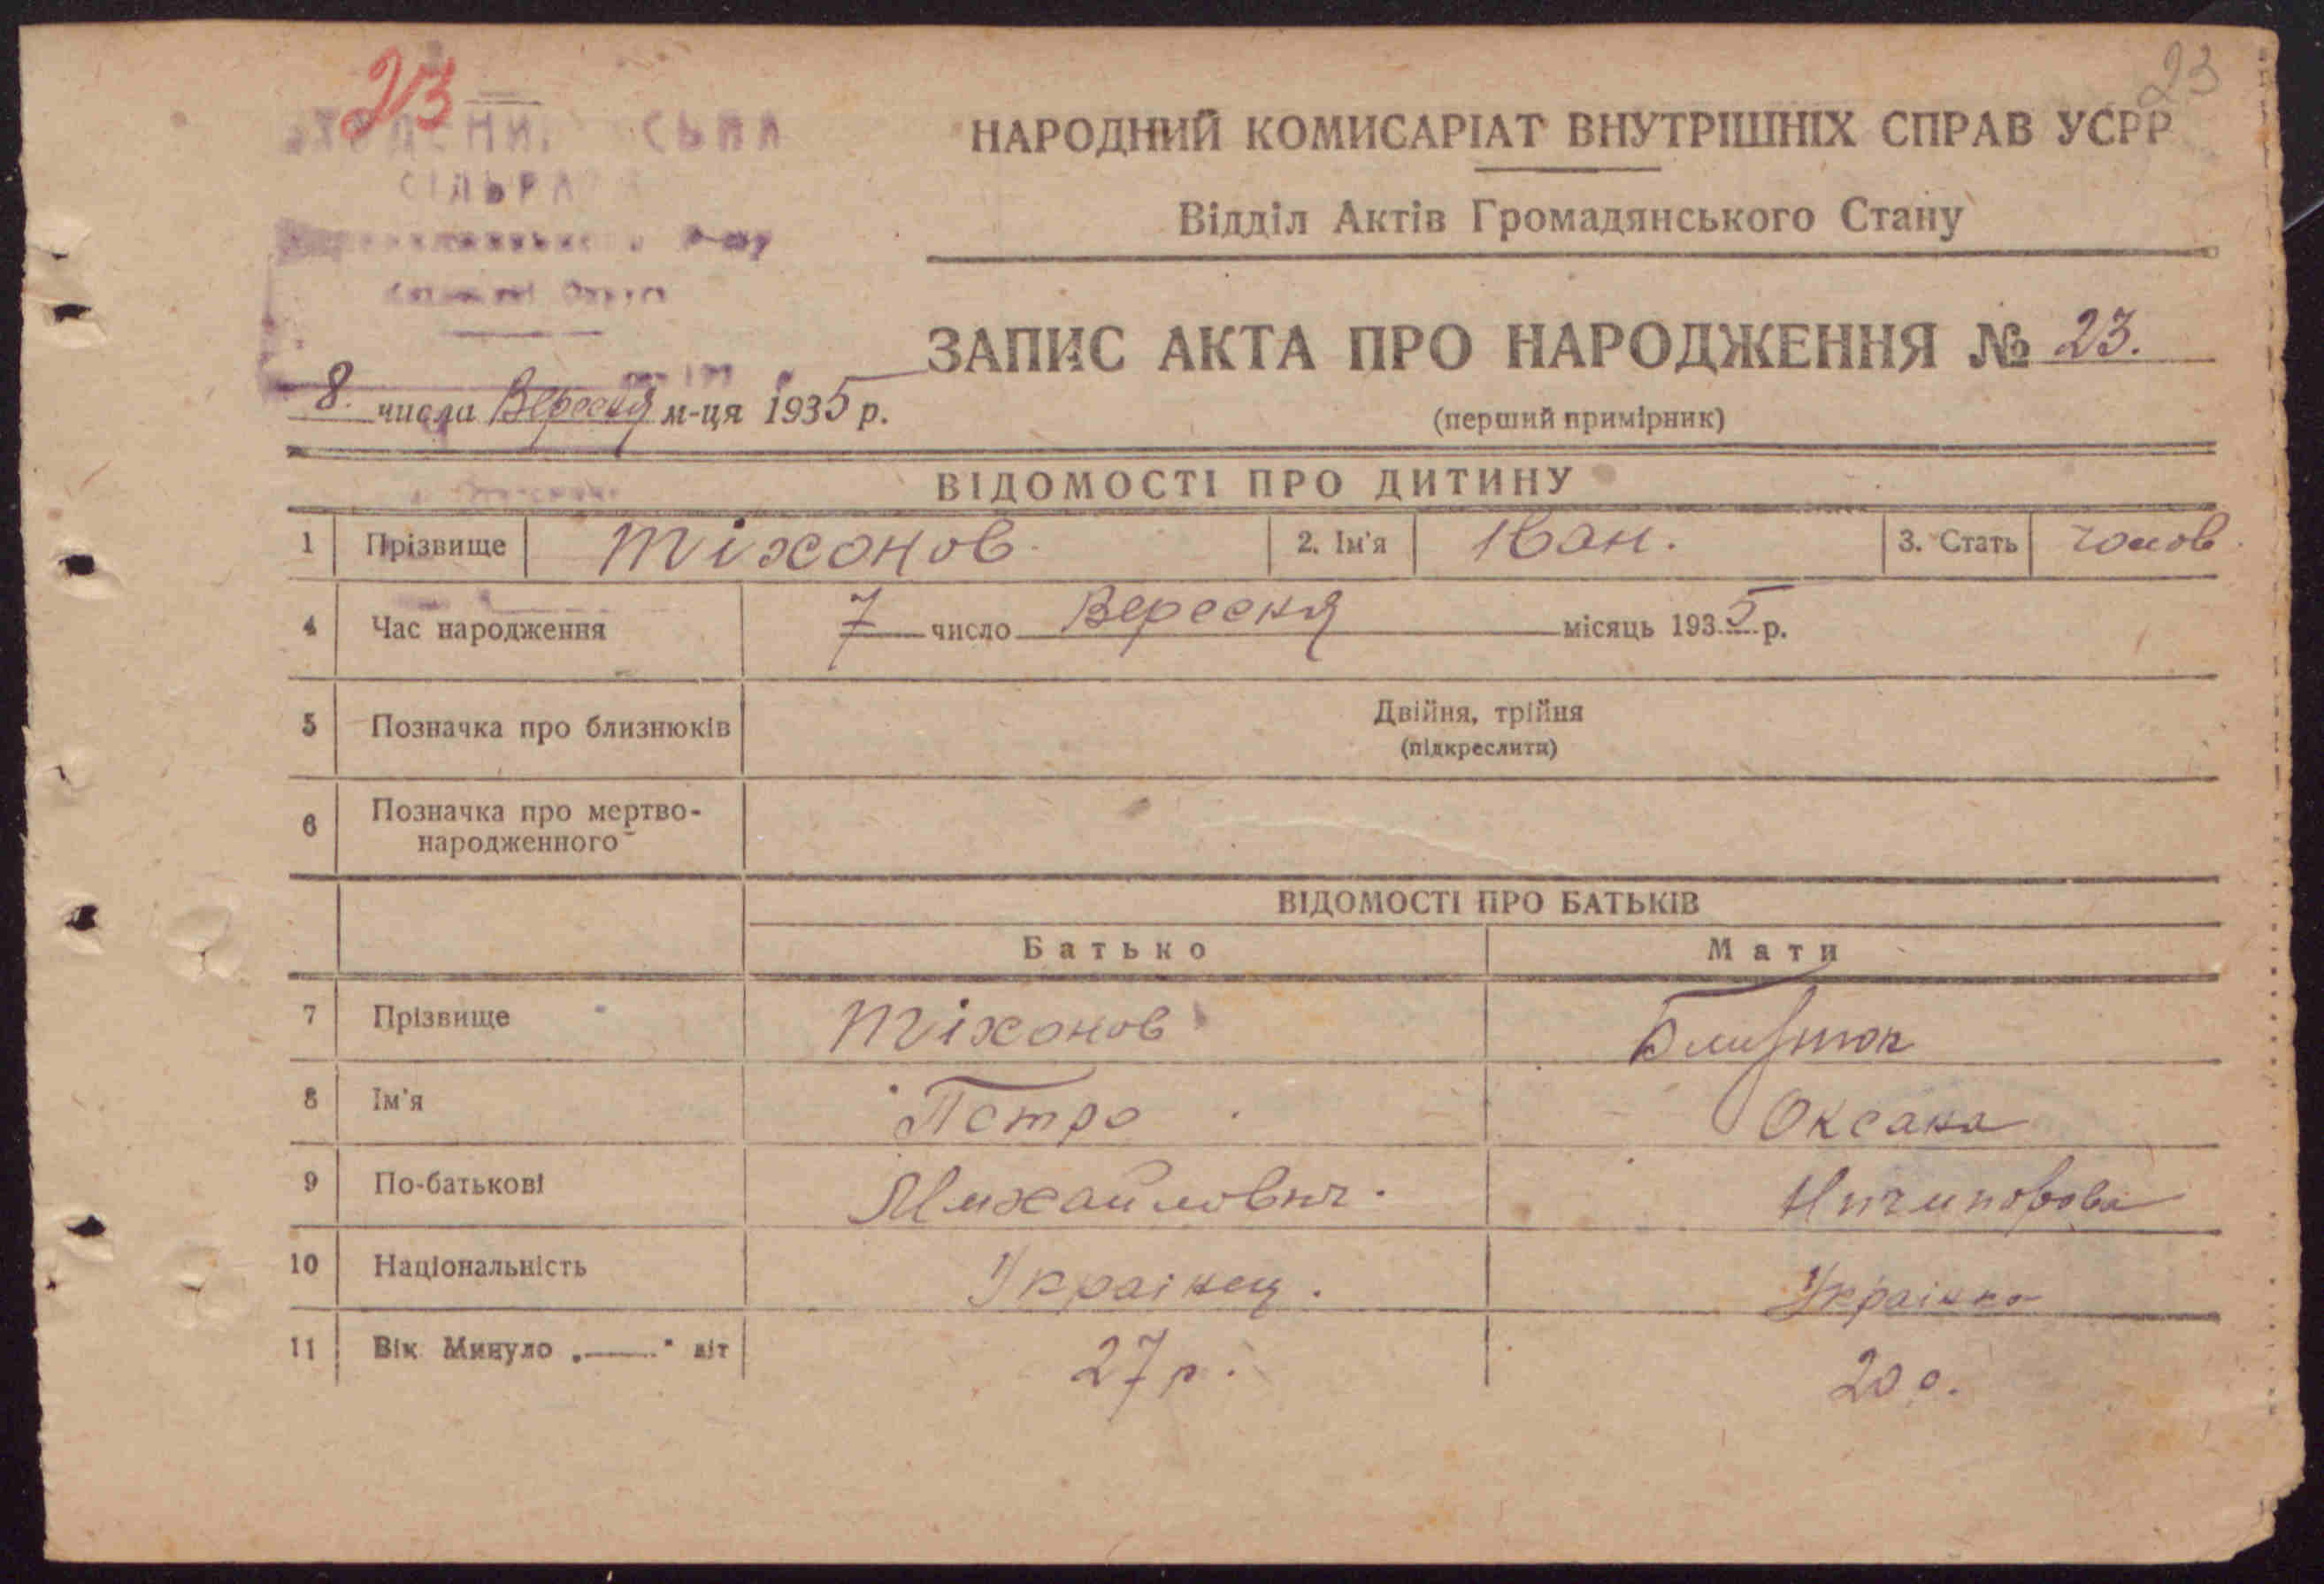 23
23
НАРОДНИЙ КОМИСАРІАТ ВНУТРІШНІХ СПРАВ УСРР
Відділ Актів Громадянського Стану
СІЛЬРА
ЗАПИС АКТА ПРО НАРОДЖЕННЯ № 23.
8. числа Вересня м-ця 1935 р.
(перший примірник)
ВІДОМОСТІ ПРО ДИТИНУ
1 Прізвище Тіхонов. 2. Ім'я Іван. 3. Стать чолов.
4 Час народження 7 число Вересня місяць 1935 р.
5 Позначка про близнюків Двійня, трійня
(підкреслити)
6 Позначка про мертво-
народженного
ВІДОМОСТІ ПРО БАТЬКІВ
Батько Мати
7 Прізвище Тіхонов
8 Ім'я Петро Оксана
9 По-батькові Михайлович. Ничипорова
10 Національність Украінец. Украінка
11 Вік Минуло „—" літ 27 р. 20 р.